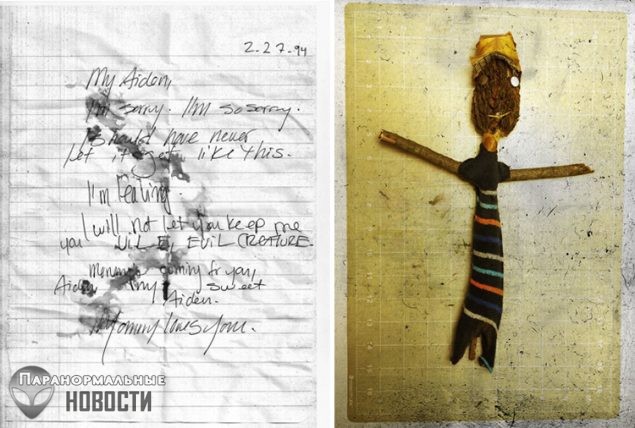 2.27.94
My Aiden,
I'm sorry. I'm so sorry.
I should have never
let it get like this.
I'm
I will not let you keep me
you VILE, EVIL CREATURE.
coming for you,
Aiden my sweet
Aiden.
Mommy loves you.
Паранормальные
НОВОСТИ